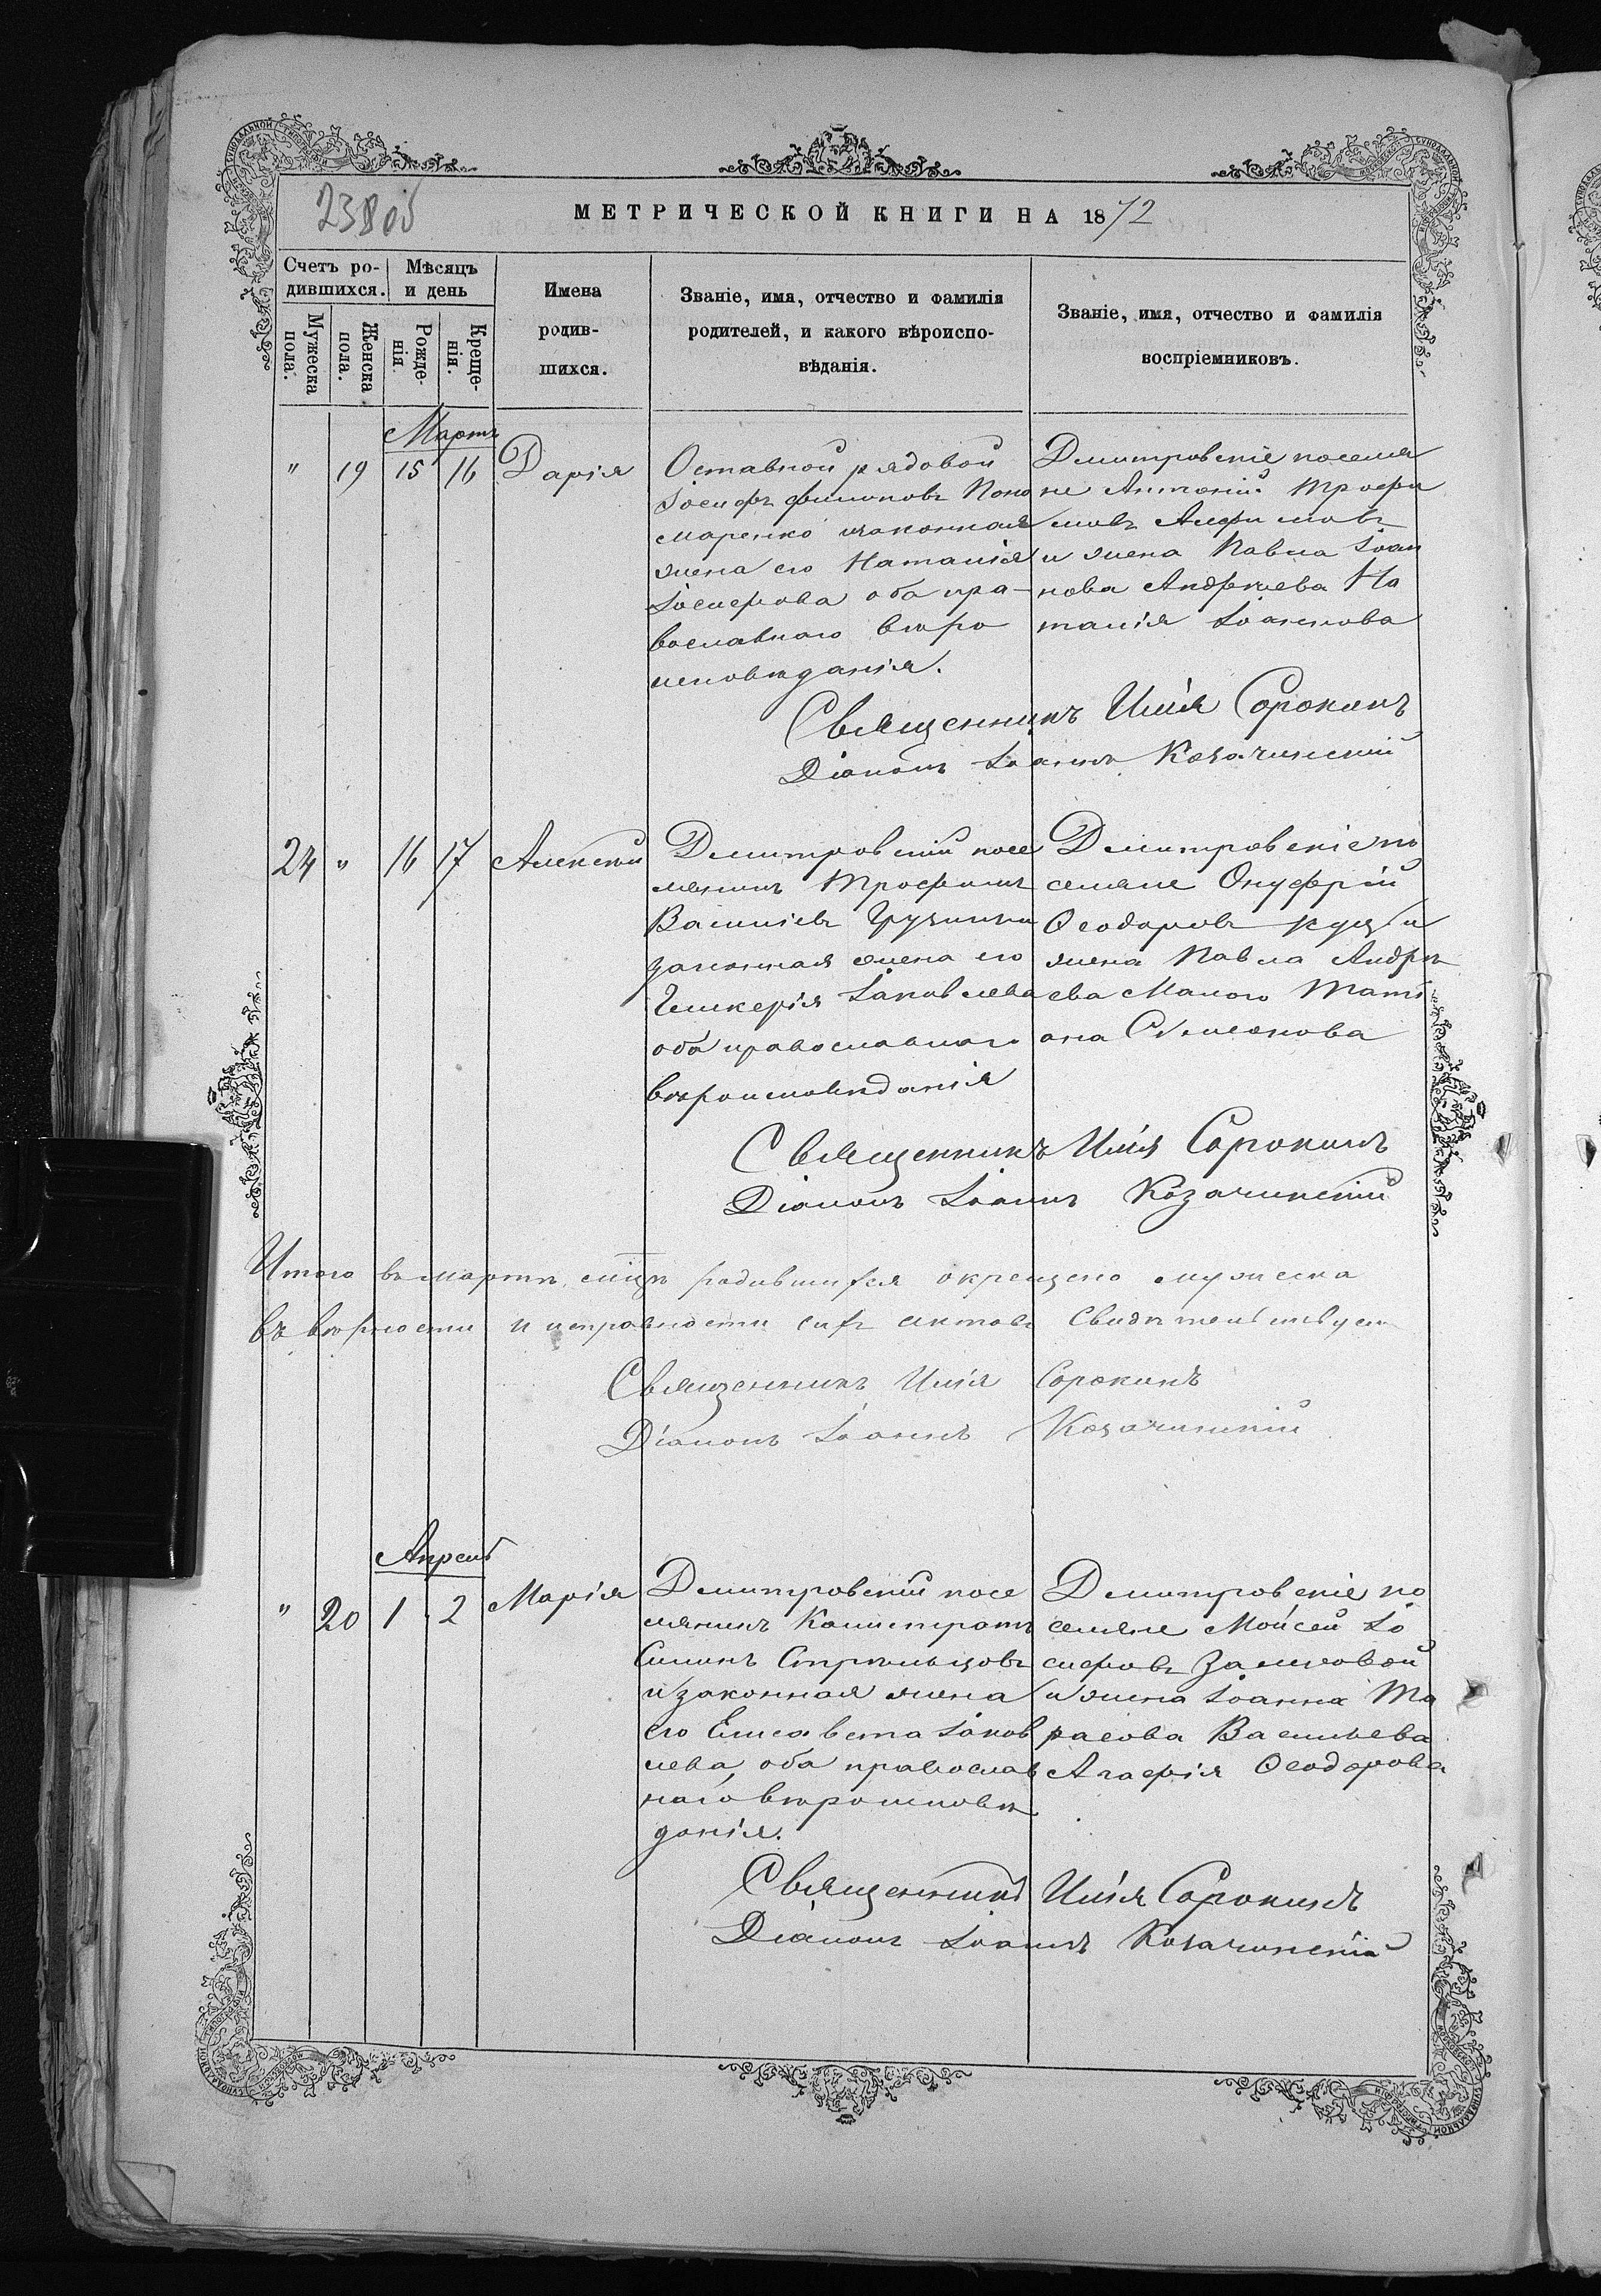 238об
МЕТРИЧЕСКОЙ КНИГИ НА 1872
Счетъ ро-
дившихся.
Мѣсяцъ
и день
Мужеска
пола.
Женска
пола.
Рожде-
нія.
Креще-
нія.
Имена
родив-
шихся.
Званіе, имя, отчество и фамилія
родителей, и какого вѣроиспо-
вѣданія.
Званіе, имя, отчество и фамилія
воспріемниковъ.
Мартъ
" 19 15 16 Дарія
Оставной рядовой
Іосифъ Филиповъ Поно
маренко изаконная
жена его Наталія
Іосифова оба пра-
вославнаго вѣро
исповѣданія.
Дмитровскіе поселя
не Антоній Трофи
мовъ
и жена Павла Іоан
нова Андреева На
талія Іоаннова
Священникъ Илія Сорокинъ
Діаконъ Іоаннъ Козачинскій
24 " 16 17 Алексѣй
Дмитровскій посе
лянинъ Трофимъ
Василіевъ
законная жена его
Гликерія Іаковлева
оба православнаго
вѣроисповѣданія
Дмитровскіе по
селяне Онуфрій
Ѳеодоровъ Куц и
жена Павла Андрѣ
ева Малого Тати
ана Симеонова
Священникъ Илія Сорокинъ
Діаконъ Іоаннъ Козачинскій
Итого въ мартѣ мцѣ родившихся окрещено мужеска
въ вѣрности и исправности сихъ актовъ свидѣтельствуем
Священникъ Илія Сорокинъ
Діаконъ Іоаннъ Козачинскій
Апрель
" 20 1 2 Марія
Дмитровскій посе
лянинъ Калистратъ
Силинъ Стрѣльцовъ
и законная жена
его Елисавета Іаков
лева, оба православ
наго вѣроисповѣ
данія.
Дмитровскіе по
селяне Мойсей Іо
сифовъ Замковой
и жена Іоанна Та
расова Васильева
Агафія Ѳеодорова
Священникъ Илія Сорокинъ
Діаконъ Іоаннъ Козачинскій